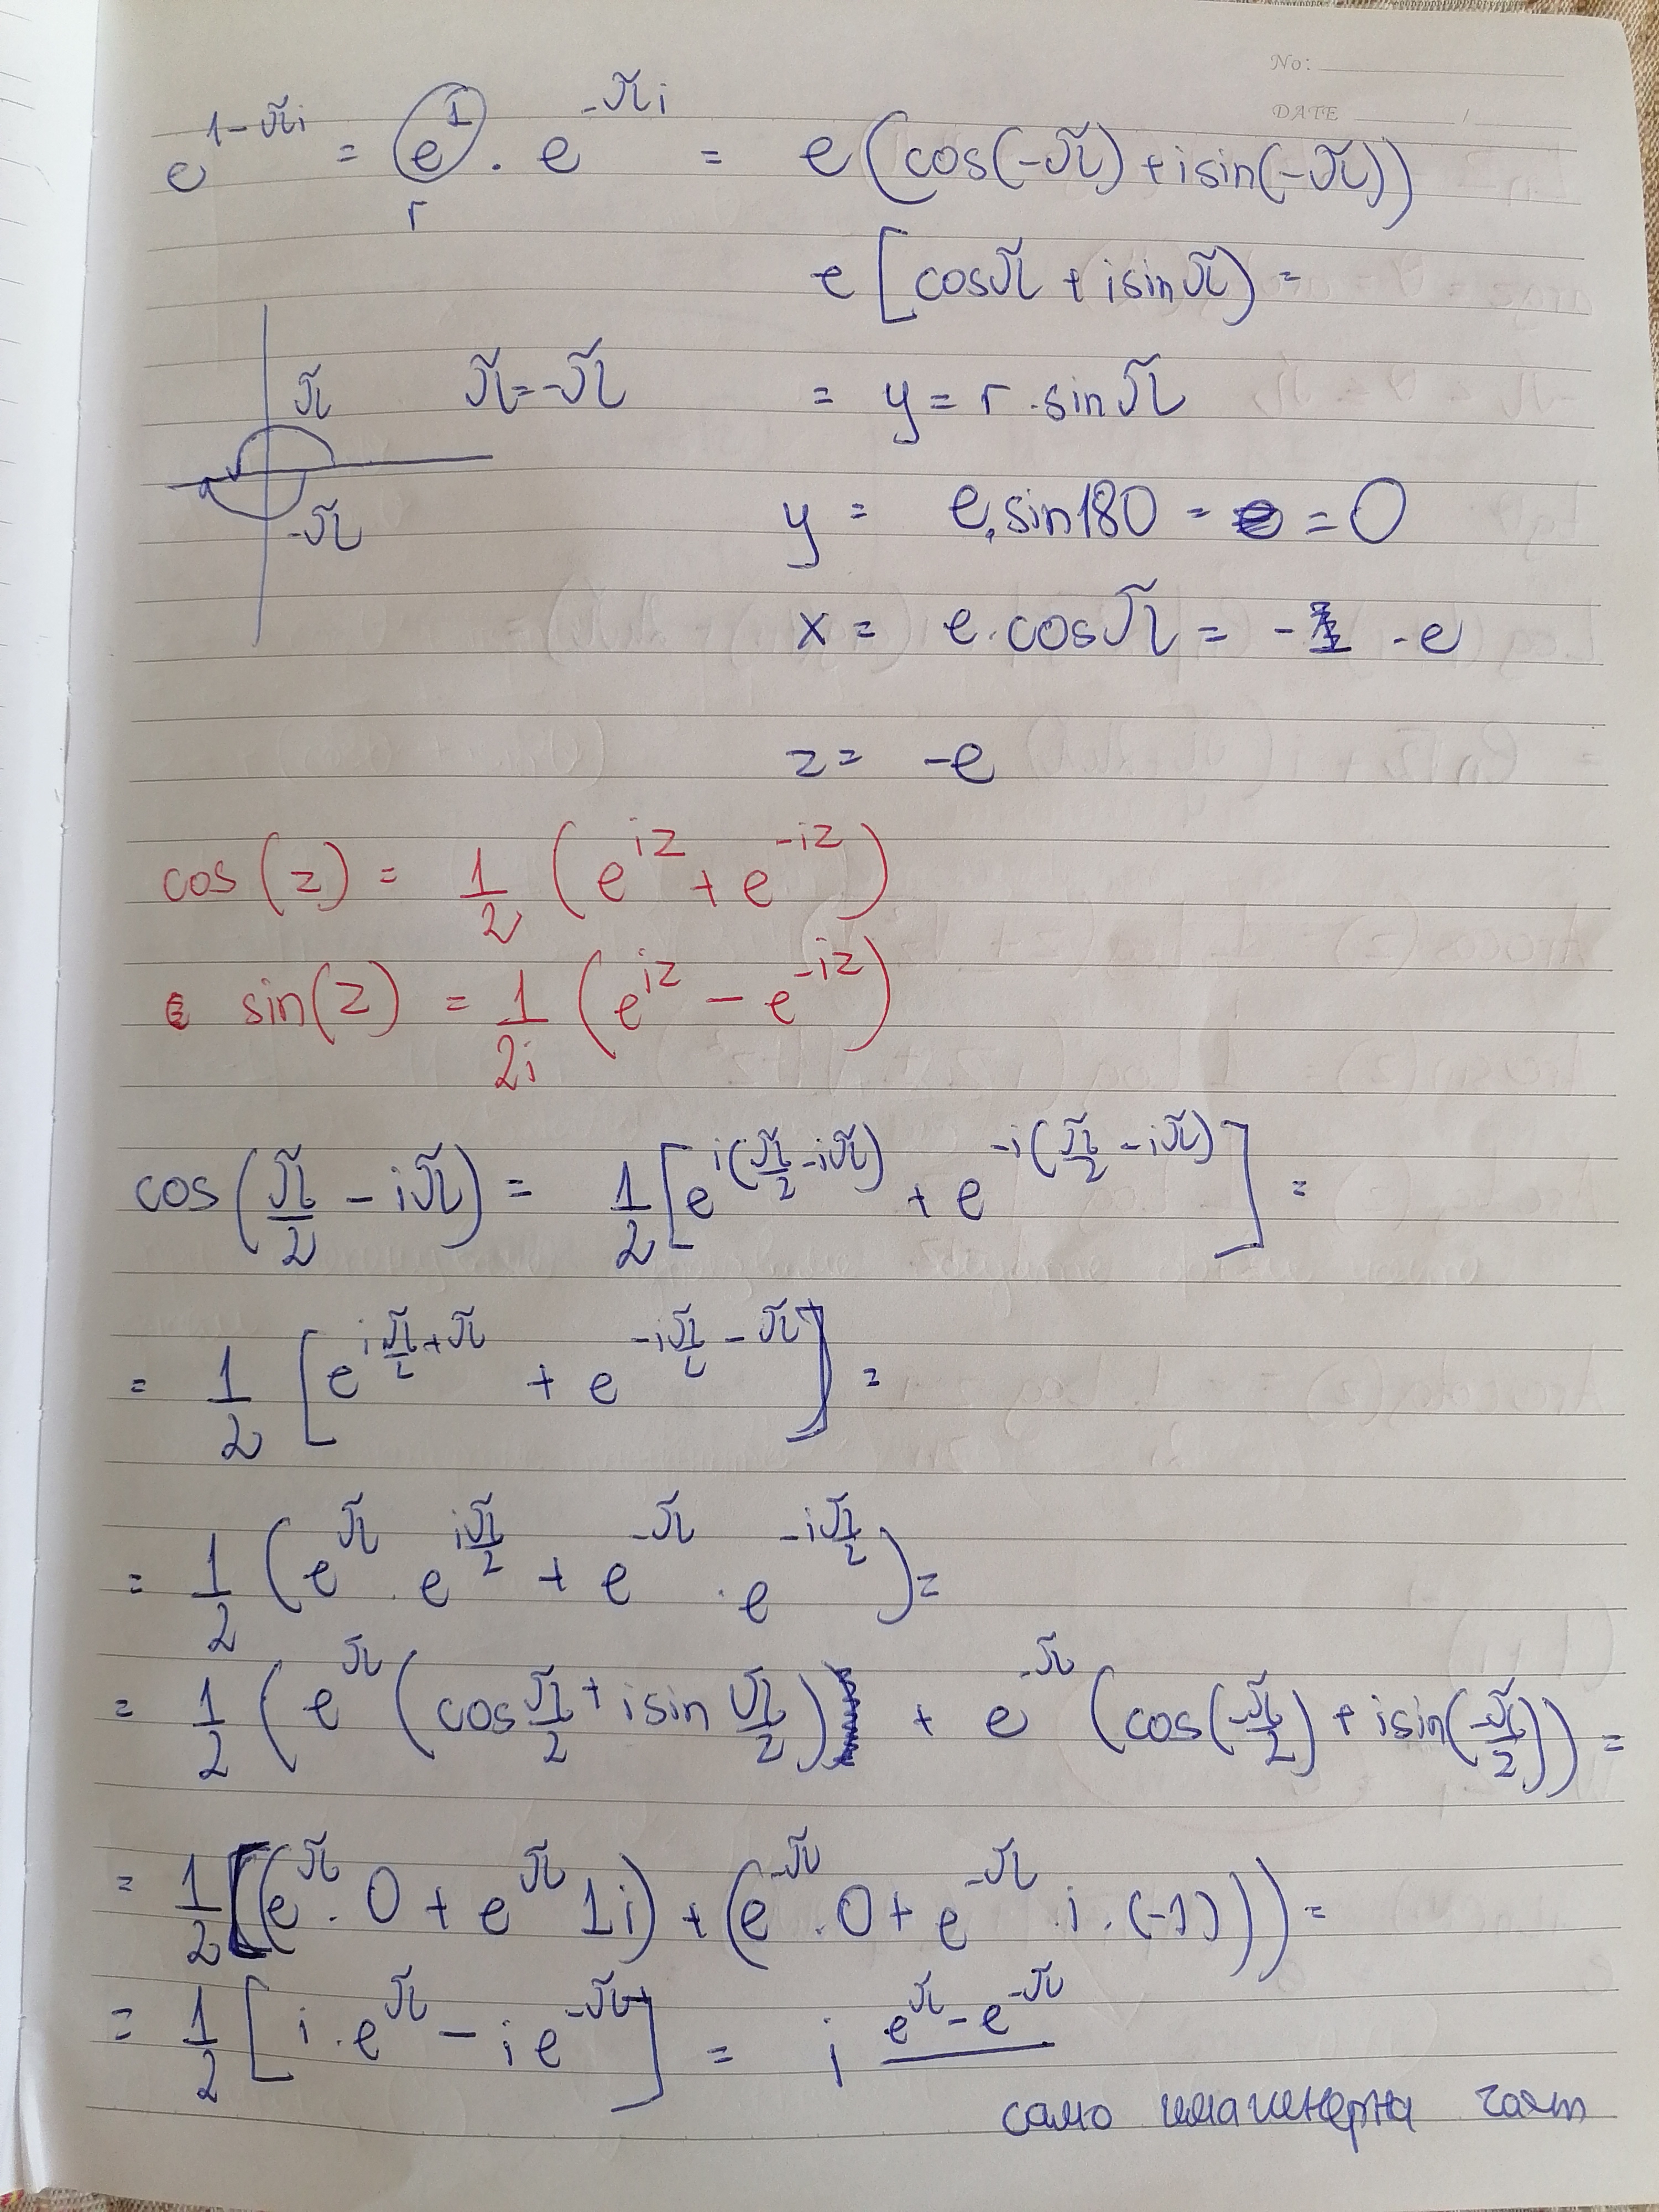 No:
DATE /
e^{1-πi} = e^1 . e^{-πi} = e(cos(-π) + isin(-π))
r
e[cosπ + isinπ) =
π π=-π = y = r . sinπ
-π
y = e.sin180 - = 0
x = e.cosπ = - -e
z = -e
cos(z) = 1/2 (e^{iz} + e^{-iz})
sin(z) = 1/2i (e^{iz} - e^{-iz})
cos(π/2 - iπ) = 1/2 [e^{i(π/2 - iπ)} + e^{-i(π/2 - iπ)}] =
= 1/2 [e^{iπ/2 + π} + e^{-iπ/2 - π}] =
= 1/2 (e^π . e^{iπ/2} + e^{-π} . e^{-iπ/2}) =
= 1/2 (e^π (cosπ/2 + isin π/2) + e^{-π} (cos(-π/2) + isin(-π/2)) =
= 1/2 [(e^π . 0 + e^π 1i) + (e^{-π} . 0 + e^{-π} . i . (-1))) =
= 1/2 [i . e^π - i e^{-π}] = i e^π - e^{-π}
само имагинерна част